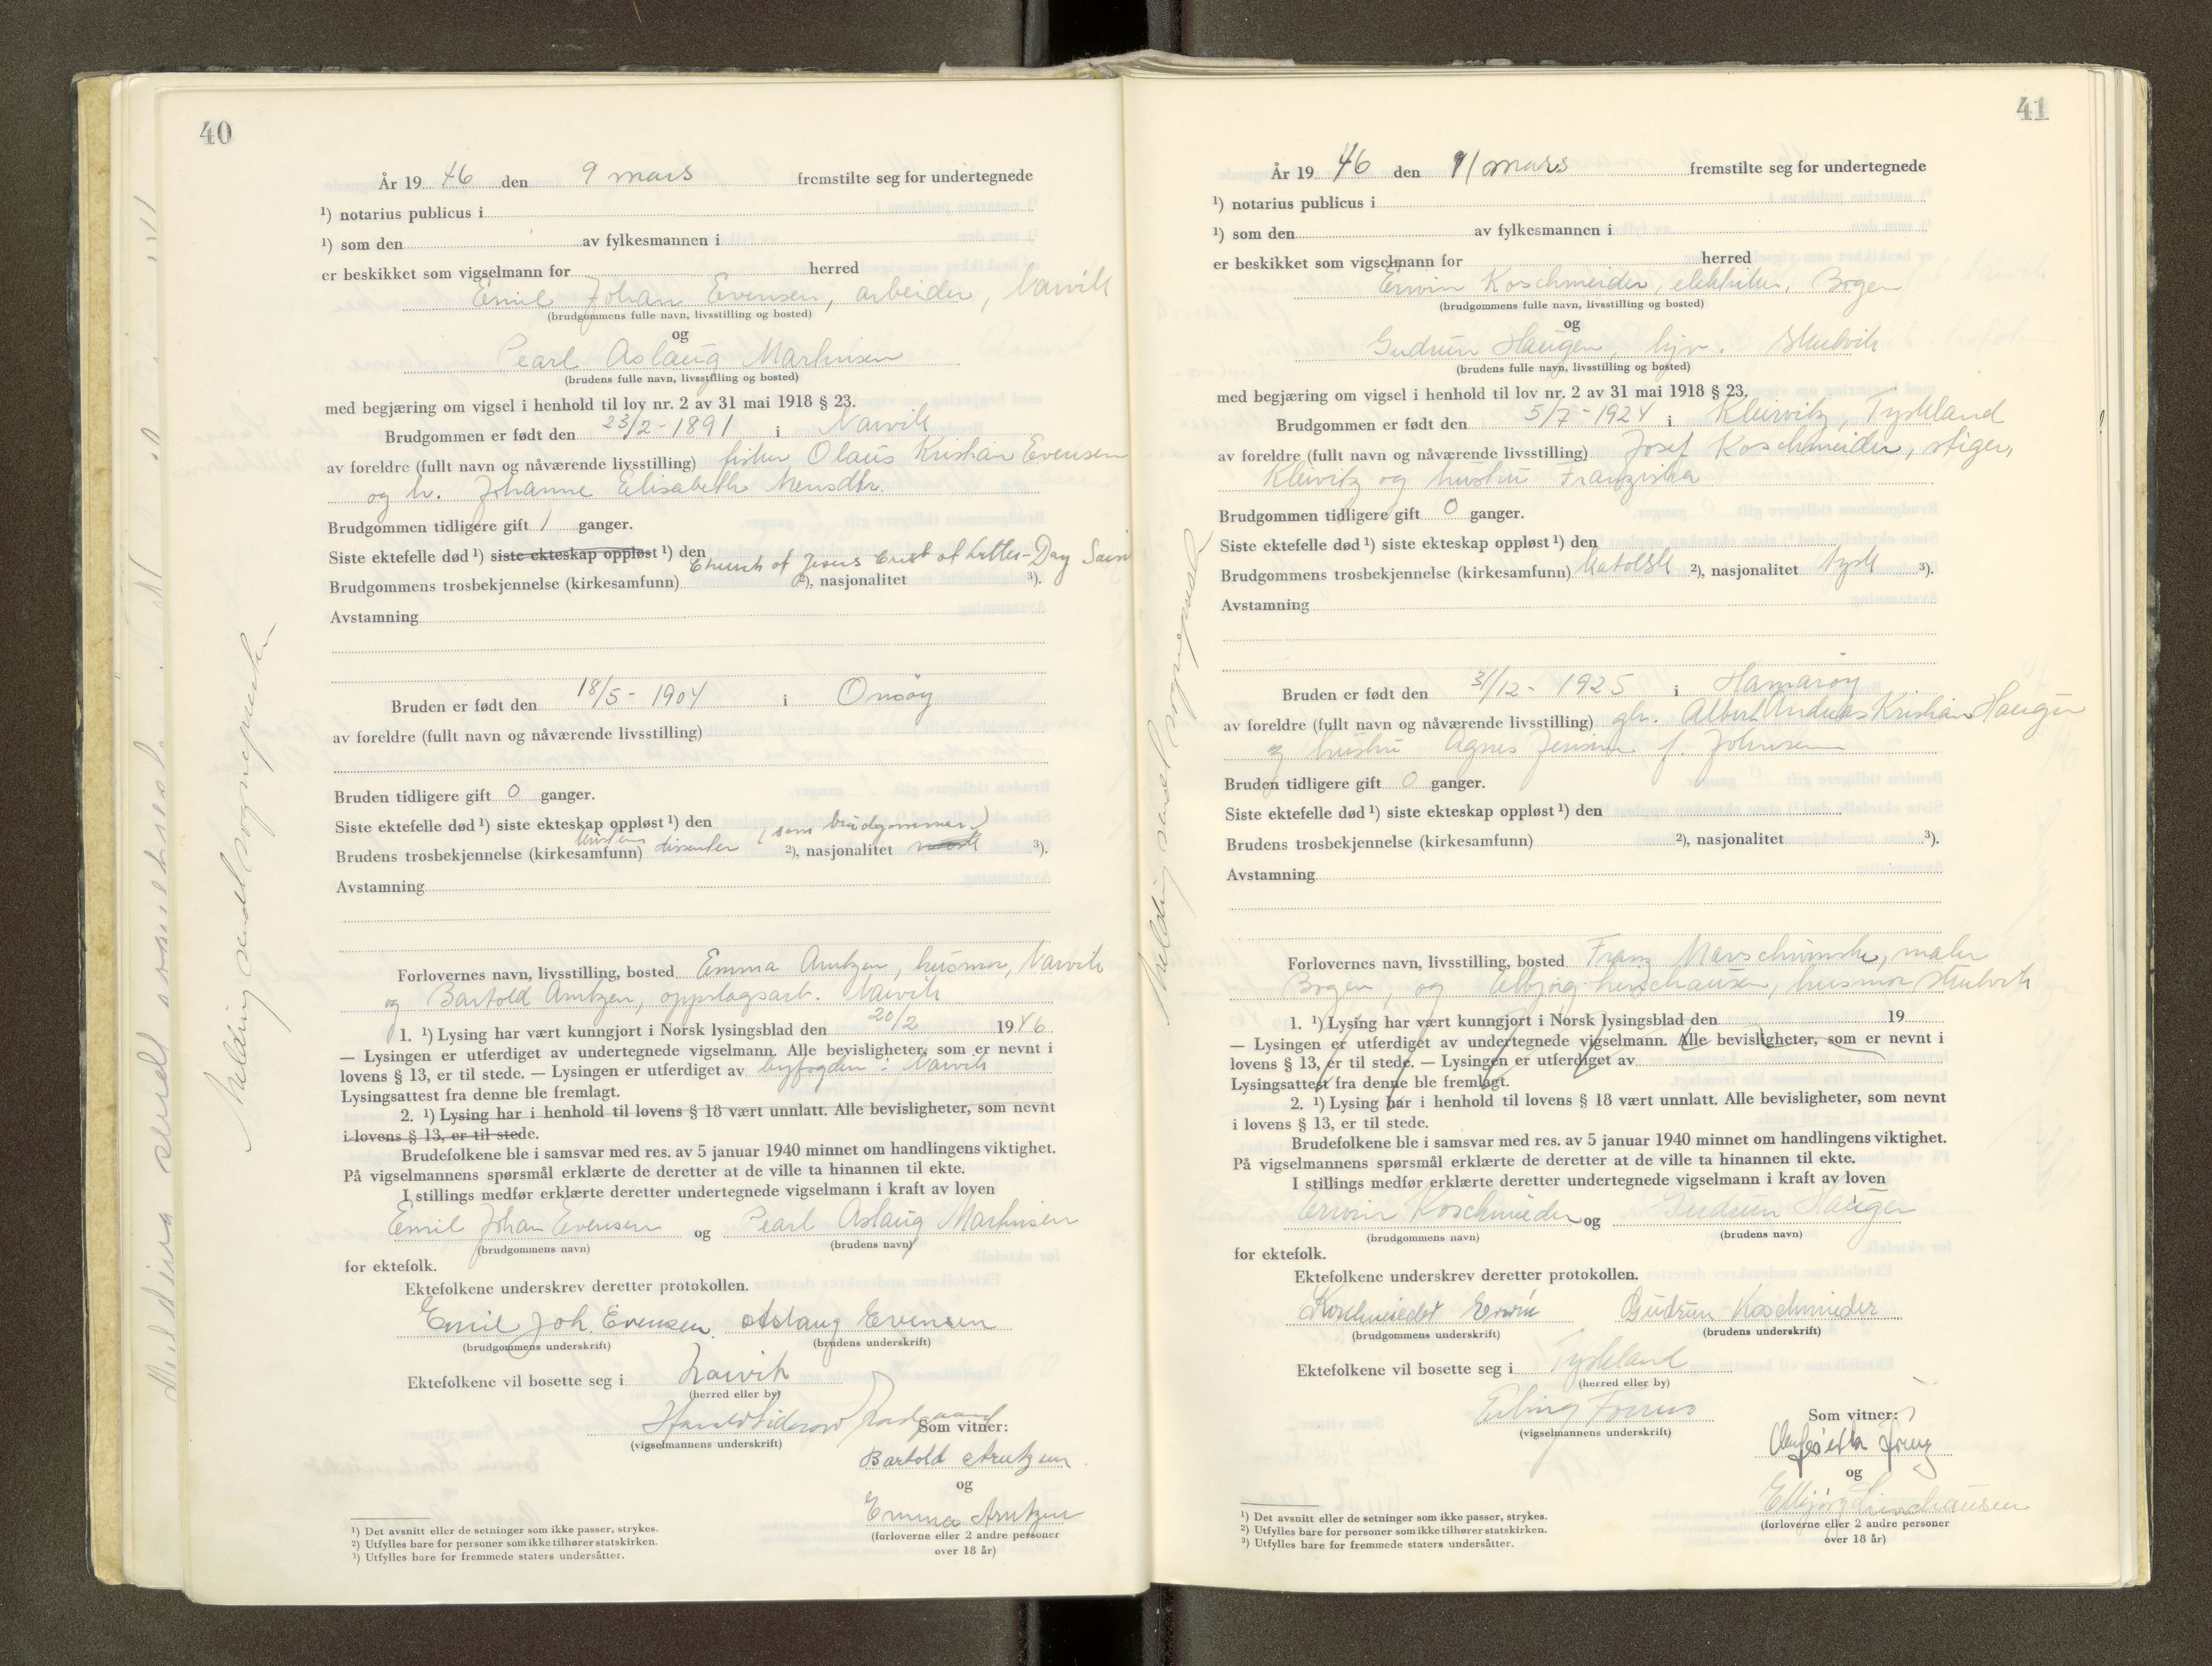 40
År 19 46 den 9 mars fremstilte seg for undertegnede
¹) notarius publicus i
¹) som den av fylkesmannen i
er beskikket som vigselmann for herred
Emil Johan Evensen, arbeider, Narvik
(brudgommens fulle navn, livsstilling og bosted)
og
Pearl Aslaug Martinsen
(brudens fulle navn, livsstilling og bosted)
med begjæring om vigsel i henhold til lov nr. 2 av 31 mai 1918 § 23.
Brudgommen er født den 23/2-1891 i Narvik
av foreldre (fullt navn og nåværende livsstilling) fisker Olaus Kristian Evensen
og h. Johanne Elisabeth
Brudgommen tidligere gift 1 ganger.
Siste ektefelle død ¹) siste ekteskap oppløst ¹) den
Church of Jesus Crist of Latter-Day Sain
Brudgommens trosbekjennelse (kirkesamfunn) ²), nasjonalitet ³).
Avstamning
Bruden er født den 18/5-1904 i Onsøy
av foreldre (fullt navn og nåværende livsstilling)
Bruden tidligere gift 0 ganger.
Siste ektefelle død ¹) siste ekteskap oppløst ¹) den
(som brudgommen)
Brudens trosbekjennelse (kirkesamfunn) dissenter ²), nasjonalitet norsk ³).
Avstamning
Forlovernes navn, livsstilling, bosted Emma Arntzen, husmor, Narvik
og Bartold Arntzen, oppslagsarb. Narvik
1. ¹) Lysing har vært kunngjort i Norsk lysingsblad den 20/2 1946
— Lysingen er utferdiget av undertegnede vigselmann. Alle bevisligheter, som er nevnt i
lovens § 13, er til stede. — Lysingen er utferdiget av byfogden i Narvik
Lysingsattest fra denne ble fremlagt.
2. ¹) Lysing har i henhold til lovens § 18 vært unnlatt. Alle bevisligheter, som nevnt
i lovens § 13, er til stede.
Brudefolkene ble i samsvar med res. av 5 januar 1940 minnet om handlingens viktighet.
På vigselmannens spørsmål erklærte de deretter at de ville ta hinannen til ekte.
I stillings medfør erklærte deretter undertegnede vigselmann i kraft av loven
Emil Johan Evensen og Pearl Aslaug Martinsen
(brudgommens navn) (brudens navn)
for ektefolk.
Ektefolkene underskrev deretter protokollen.
Emil Joh. Evensen. Aslaug Evensen
(brudgommens underskrift) (brudens underskrift)
Ektefolkene vil bosette seg i Narvik
(herred eller by)
Som vitner:
(vigselmannens underskrift)
Bartold Arntzen
og
Emma Arntzen
(forloverne eller 2 andre personer
over 18 år)
¹) Det avsnitt eller de setninger som ikke passer, strykes.
²) Utfylles bare for personer som ikke tilhører statskirken.
³) Utfylles bare for fremmede staters undersåtter.
Melding sendt sogneprest
41
År 19 46 den 11 mars fremstilte seg for undertegnede
¹) notarius publicus i
¹) som den av fylkesmannen i
er beskikket som vigselmann for herred
Erwin Koschmieder, elektriker, Bogen
(brudgommens fulle navn, livsstilling og bosted)
og
Gudrun Haugen, hjv.
(brudens fulle navn, livsstilling og bosted)
med begjæring om vigsel i henhold til lov nr. 2 av 31 mai 1918 § 23.
Brudgommen er født den 5/7-1924 i Kleivitz, Tyskland
av foreldre (fullt navn og nåværende livsstilling) Josef Koschmeider, stiger,
Kleivitz og hustru Franziska
Brudgommen tidligere gift 0 ganger.
Siste ektefelle død ¹) siste ekteskap oppløst ¹) den
Brudgommens trosbekjennelse (kirkesamfunn) katolsk ²), nasjonalitet tysk ³).
Avstamning
Bruden er født den 31/12-1925 i Hamarøy
av foreldre (fullt navn og nåværende livsstilling) gbr. Albert Andreas Kristian Haugen
og hustru Agnes Jensine f. Johnsen
Bruden tidligere gift 0 ganger.
Siste ektefelle død ¹) siste ekteskap oppløst ¹) den
Brudens trosbekjennelse (kirkesamfunn) ²), nasjonalitet ³).
Avstamning
Forlovernes navn, livsstilling, bosted Franz maler
Bogen, og husmor
1. ¹) Lysing har vært kunngjort i Norsk lysingsblad den 19
— Lysingen er utferdiget av undertegnede vigselmann. Alle bevisligheter, som er nevnt i
lovens § 13, er til stede. — Lysingen er utferdiget av
Lysingsattest fra denne ble fremlagt.
2. ¹) Lysing har i henhold til lovens § 18 vært unnlatt. Alle bevisligheter, som nevnt
i lovens § 13, er til stede.
Brudefolkene ble i samsvar med res. av 5 januar 1940 minnet om handlingens viktighet.
På vigselmannens spørsmål erklærte de deretter at de ville ta hinannen til ekte.
I stillings medfør erklærte deretter undertegnede vigselmann i kraft av loven
Erwin Koschmieder og Gudrun Haugen
(brudgommens navn) (brudens navn)
for ektefolk.
Ektefolkene underskrev deretter protokollen.
Koschmieder Erwin Gudrun Koschmieder
(brudgommens underskrift) (brudens underskrift)
Ektefolkene vil bosette seg i Tyskland
(herred eller by)
Erling Som vitner:
(vigselmannens underskrift)
og
(forloverne eller 2 andre personer
over 18 år)
¹) Det avsnitt eller de setninger som ikke passer, strykes.
²) Utfylles bare for personer som ikke tilhører statskirken.
³) Utfylles bare for fremmede staters undersåtter.
Melding sendt sogneprest